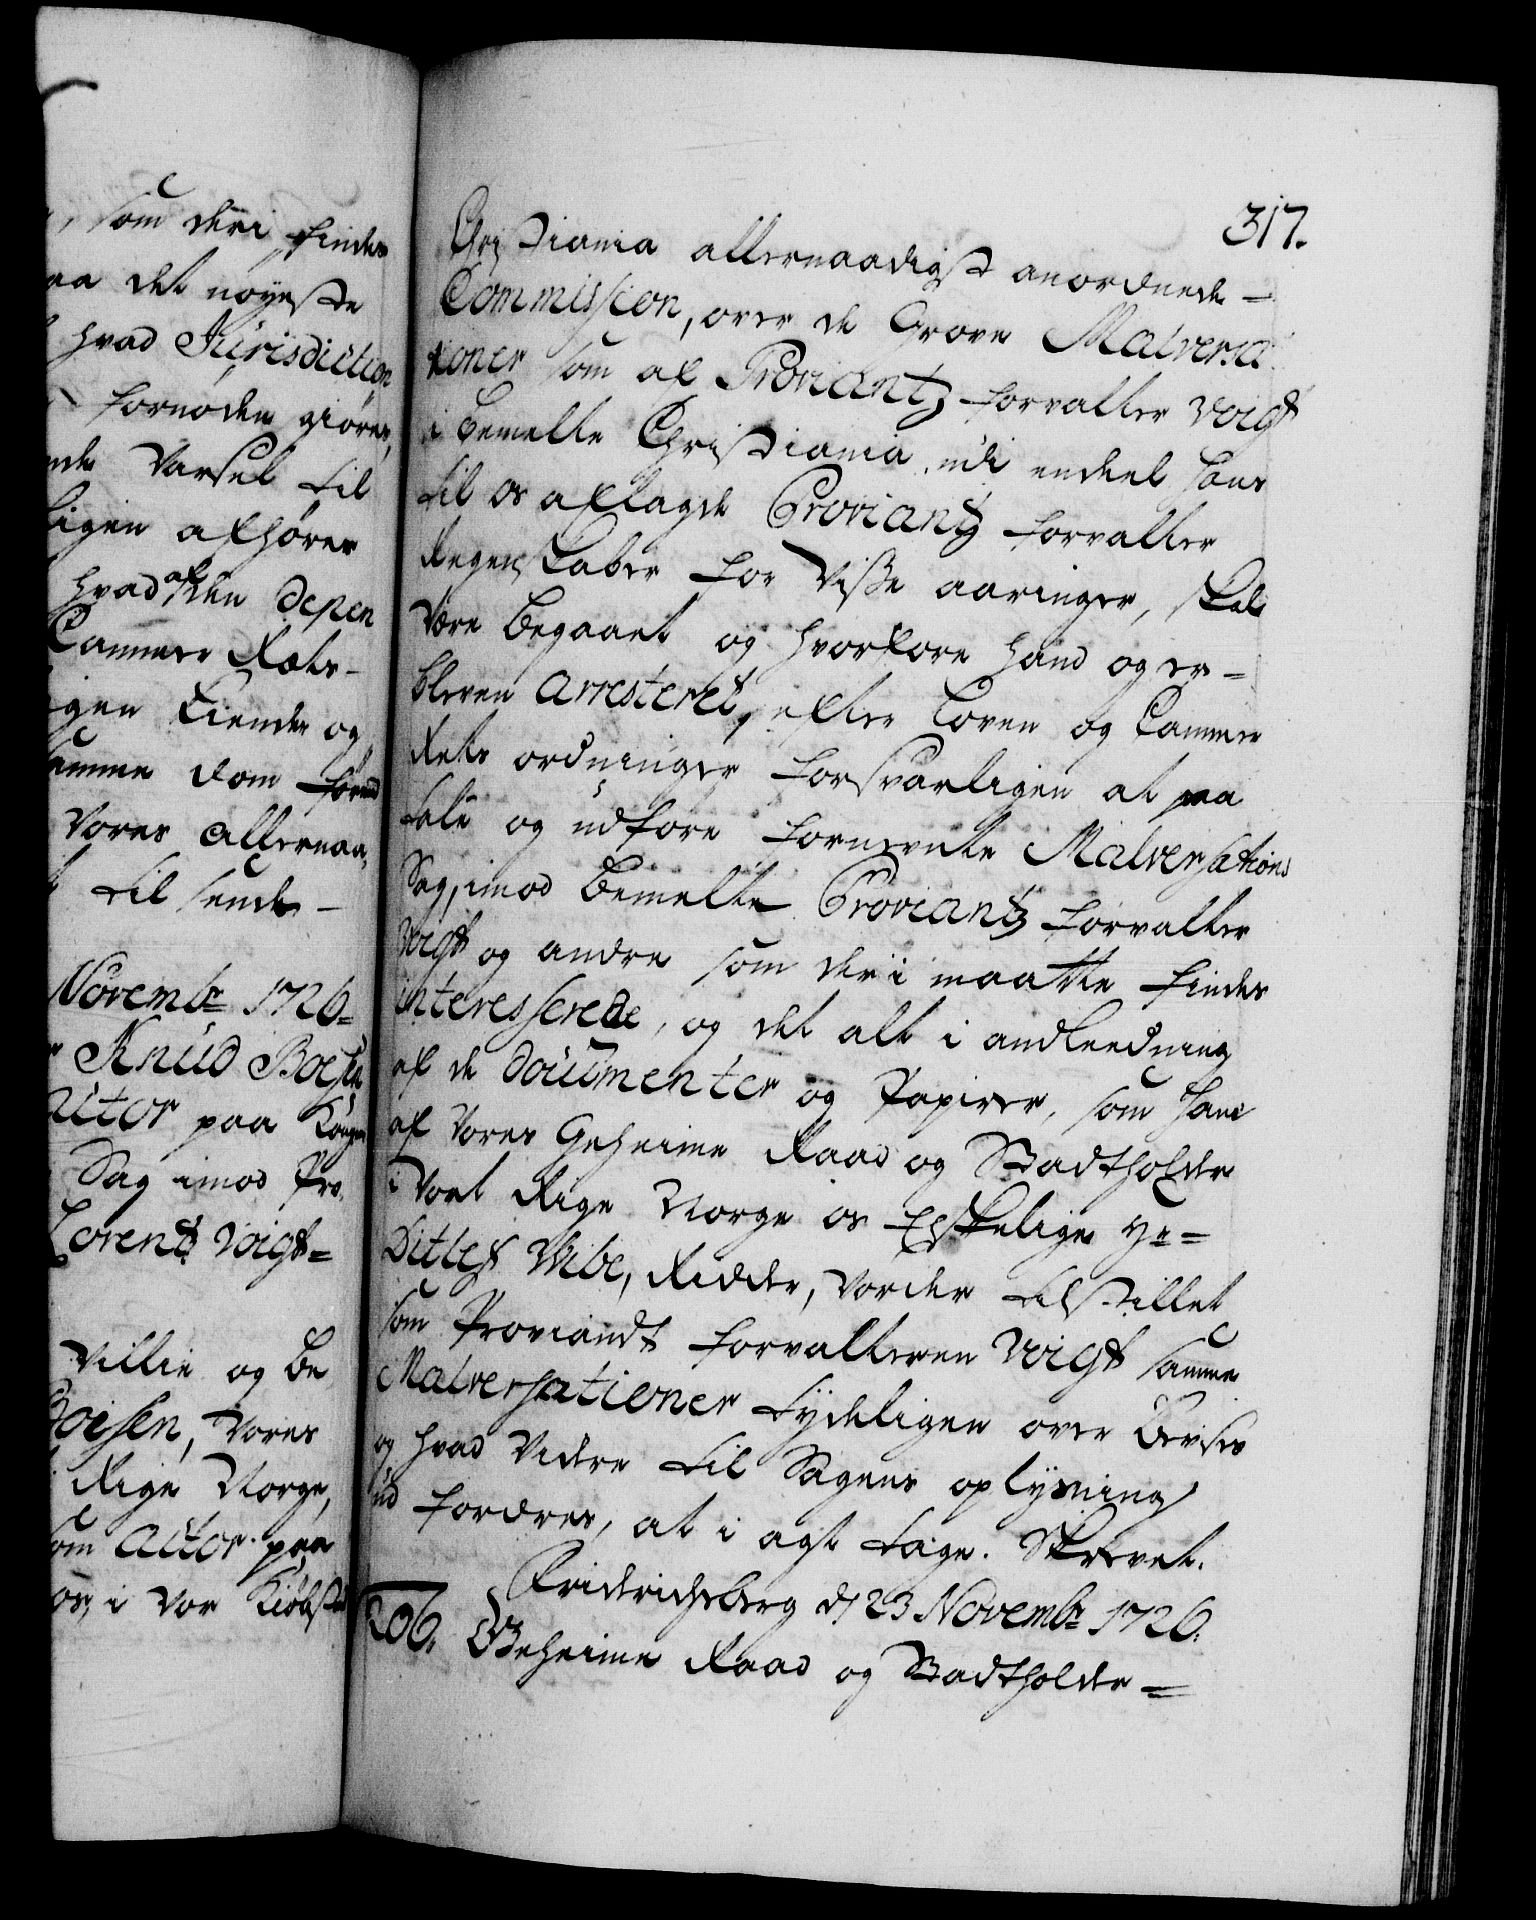 , som deri findes
aa det nøyeste
hvad Jurisdiction
fornøden giøres,
nde Varsel til
ligen afhører
hvad af den depen
Cammer Rets-
gen kiende og
samme dom
Vores allernaa,
til sende -
Novembr 1726=
Knud Boesen
utor paa
Sag imod Pro-
Lorentz Voigt=
Villie og be
Boesen, Vores
Rige Norge,
som Actor paa
os, i Vor Kiøbst
317.
Christiania allernaadigst anordnede -
Commission, over de Grove Malversa-
tioner som af Proviantz forvalter Voigt
i bemelte Christiania, udi endeel hans
til os aflagde Proviantz forvalter
Regenskaber for Visse aaringer, skal
Være begaaet og hvorfore hand og er -
bleven arresteret, efter Loven og Cammer
Rets ordninger forsvarligen at paa
tale og udføre fornevnte Malversations
Sag, imod bemelte Proviantz forvalter
Voigt og andre som deri maatte findes
interesserede, og det alt i andleedning
af de documenter og Papirer, som hand
af Vores Geheime Raad og Stadtholder
i Vort Rige Norge os Elskelige Hr=
Ditlef Wibe, Ridder, Vorder tilstillet
som Proviandt forvalteren Voigt samme
Malversationer tydeligen over beviser
og hvad Videre til Sagens oplysning
ud fordres, at i agt tage. Skrevet.
Friderichsberg d 23 Novembr 1726.
206. Geheime Raad og Stadtholder =